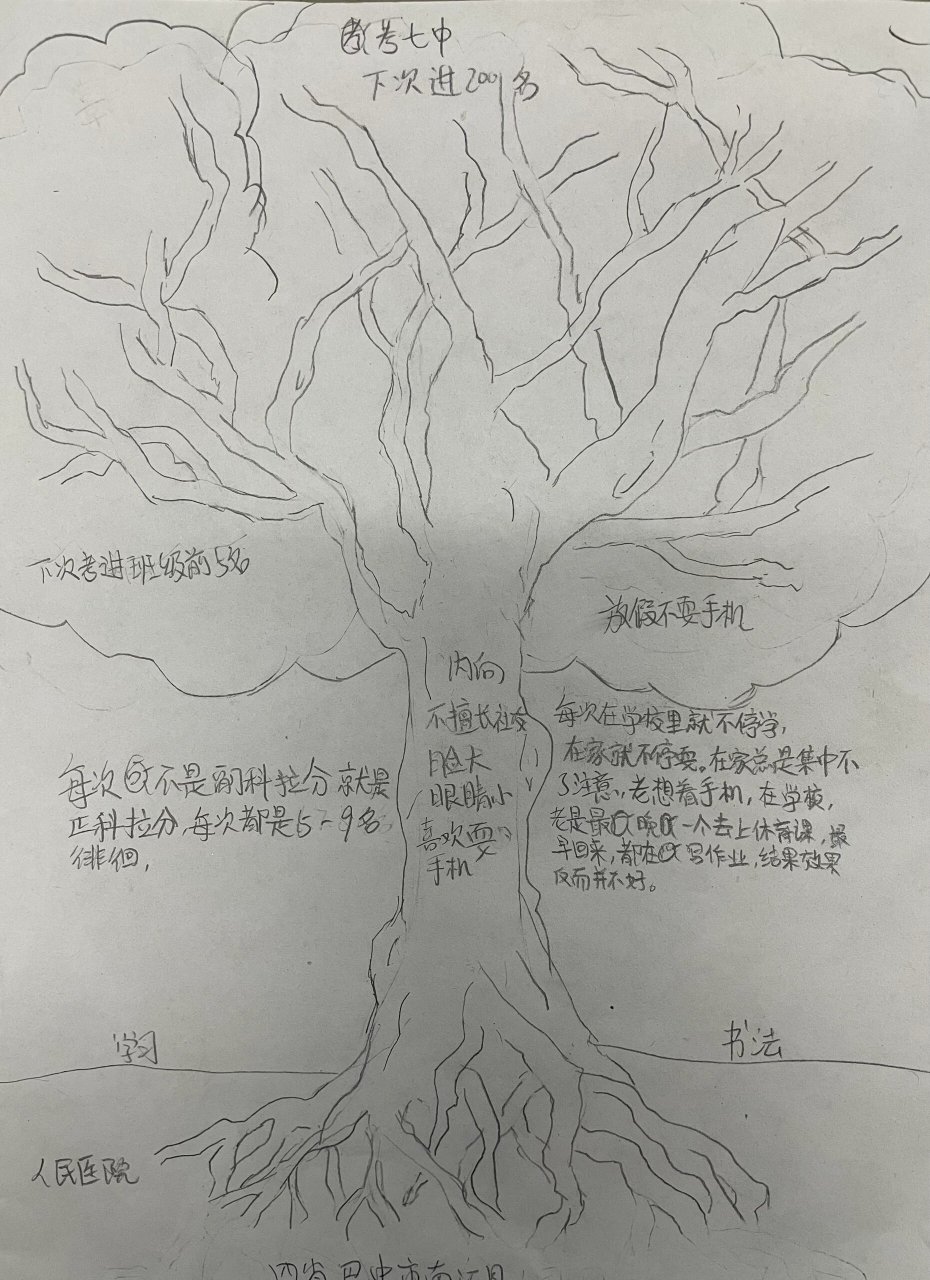 考七中
下次进200名
下次考进班级前5名
放假不耍手机
内向
不擅长社交
脸大
眼睛小
喜欢耍
手机
每次不是副科拉分就是
正科拉分,每次都是5-9名
徘徊,
每次在学校里就不停学,
在家就不停耍。在家总是集中不
了注意,老想着手机,在学校,
老是最晚一个去上体育课,最
早回来,都在写作业,结果效果
反而并不好。
学习
书法
人民医院
巴中市南江县